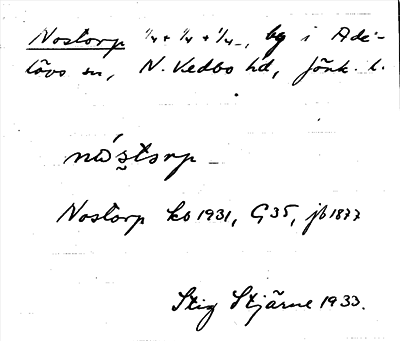 Nostorp 1/4 + 1/4 + 1/4, by i Ade-
lövs sn, N. Vedbo hd, Jönk. l.
nóstorp
Nostorp ko 1931, G35, jb 1877
Stig Stjärne 1933.